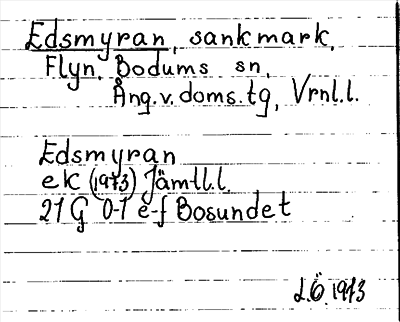 Edsmyran, sankmark,
Flyn. Bodums sn,
Ång.v.doms.tg, Vrnl.l.
Edsmyran
ek (1973) Jämtl.l.
21 G 0-1 e-f Bosundet
L.Ö.1973